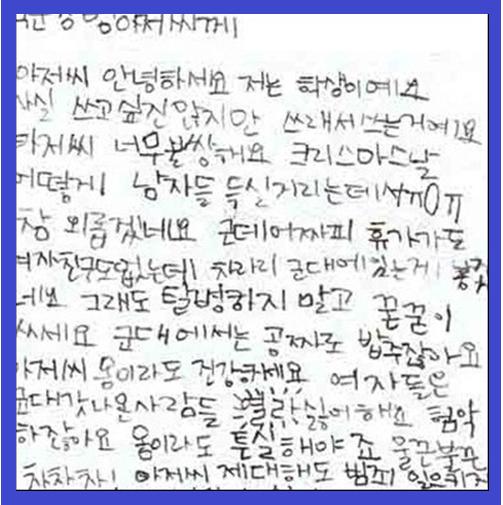 국군장병아저씨께
아저씨 안녕하세요 저는 학생이예요
사실 쓰고싶진않지만 쓰래서쓰는거에요
아저씨 너무불쌍해요 크리스마스날
어떻게 남자들 득실거리는데서ㅠ0ㅠ
참 외롭겠네요 근데어짜피 휴가가도
여자친구도없는데 차라리 군대에있는게
네요 그래도 탈병하지 말고 꾿꾿이
싸세요 군대에서는 공짜로 밥주잖아요
아저씨 몸이라도 건강하세요 여자들은
군대갓나온사람들 싫어해요 험악
하잖아요 몸이라도 튼실해야 죠 울끈불끈
차차차! 아저씨 제대해도 범죄 일으키지